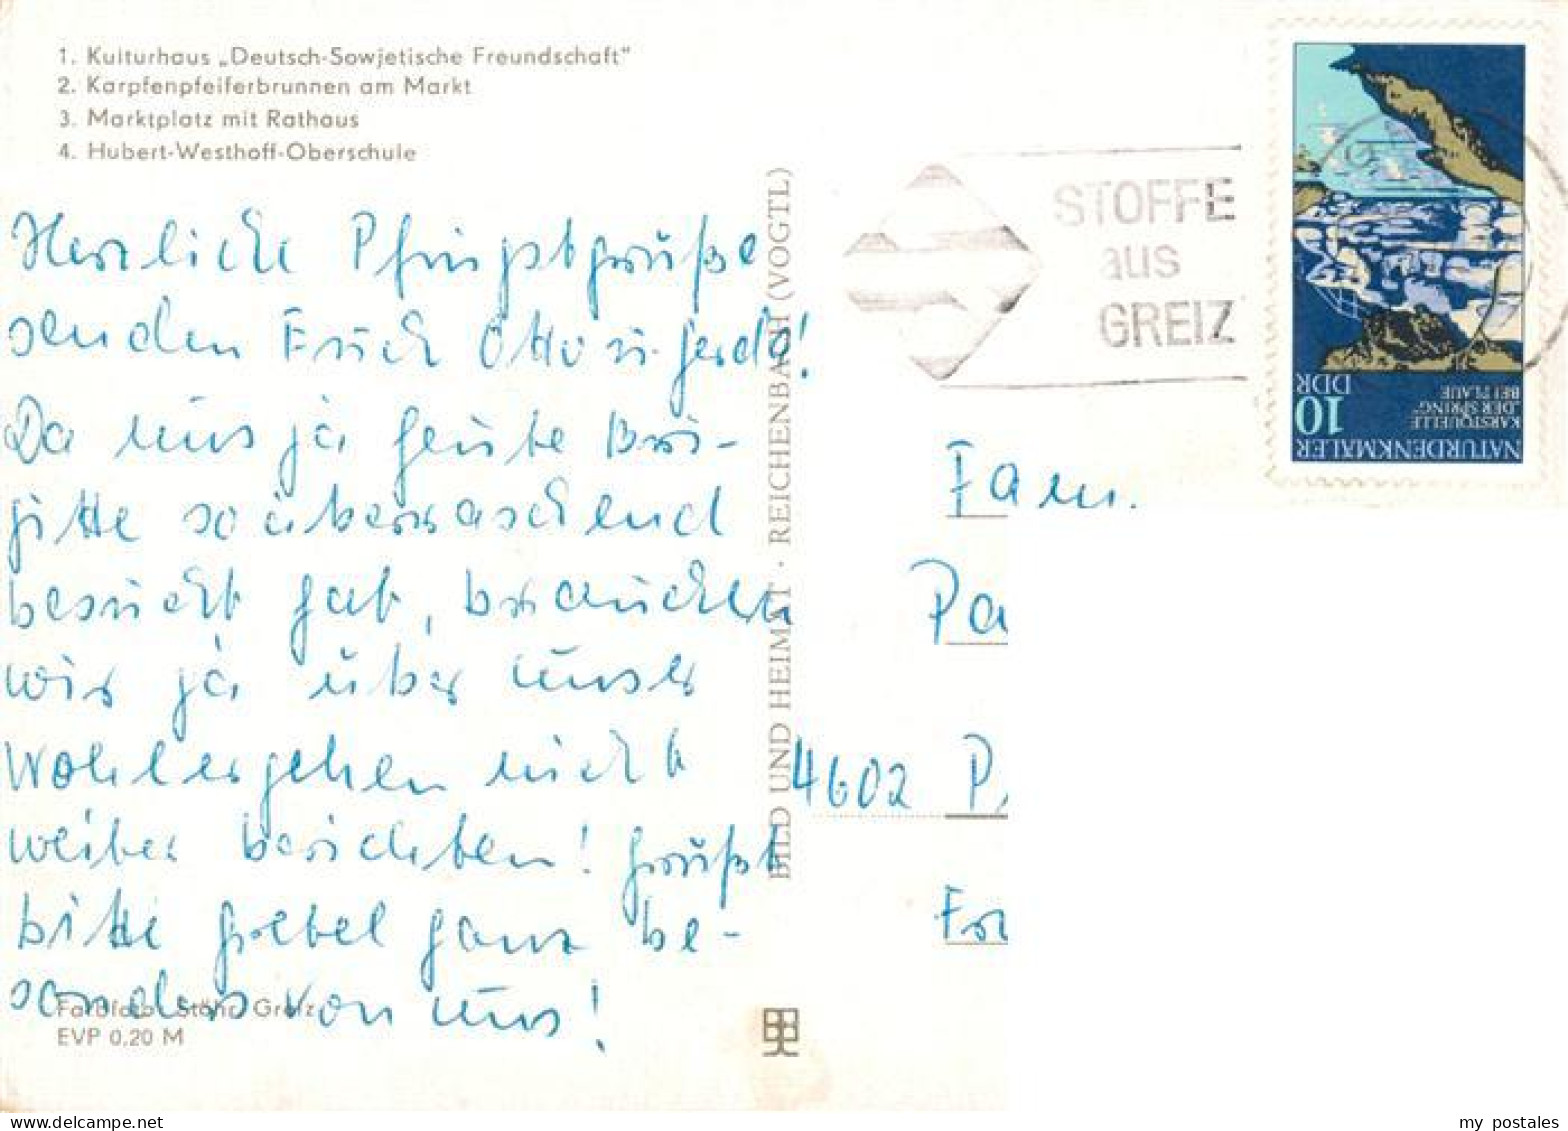 1. Kulturhaus „Deutsch-Sowjetische Freundschaft"
2. Karpfenpfeiferbrunnen am Markt
3. Marktplatz mit Rathaus
4. Hubert-Westhoff-Oberschule
Herzliche Pfingstgrüße
senden Euch Otto u. Gerda!
Da uns ja heute Bri-
gitte so überraschend
besucht hat, brauchen
wir ja über unser
Wohlergehen nicht
weiter berichten! Grüßt
bitte Goebel ganz be-
sonders von uns!
Farbfoto: Stöhr, Greiz
EVP 0,20 M
BILD UND HEIMAT · REICHENBACH (VOGTL)
STOFFE
aus
GREIZ
NATURDENKMÄLER
KARSTQUELLE
„DER SPRING"
BEI PLAUE
10
DDR
Fam.
Pa
4602 P
my postales